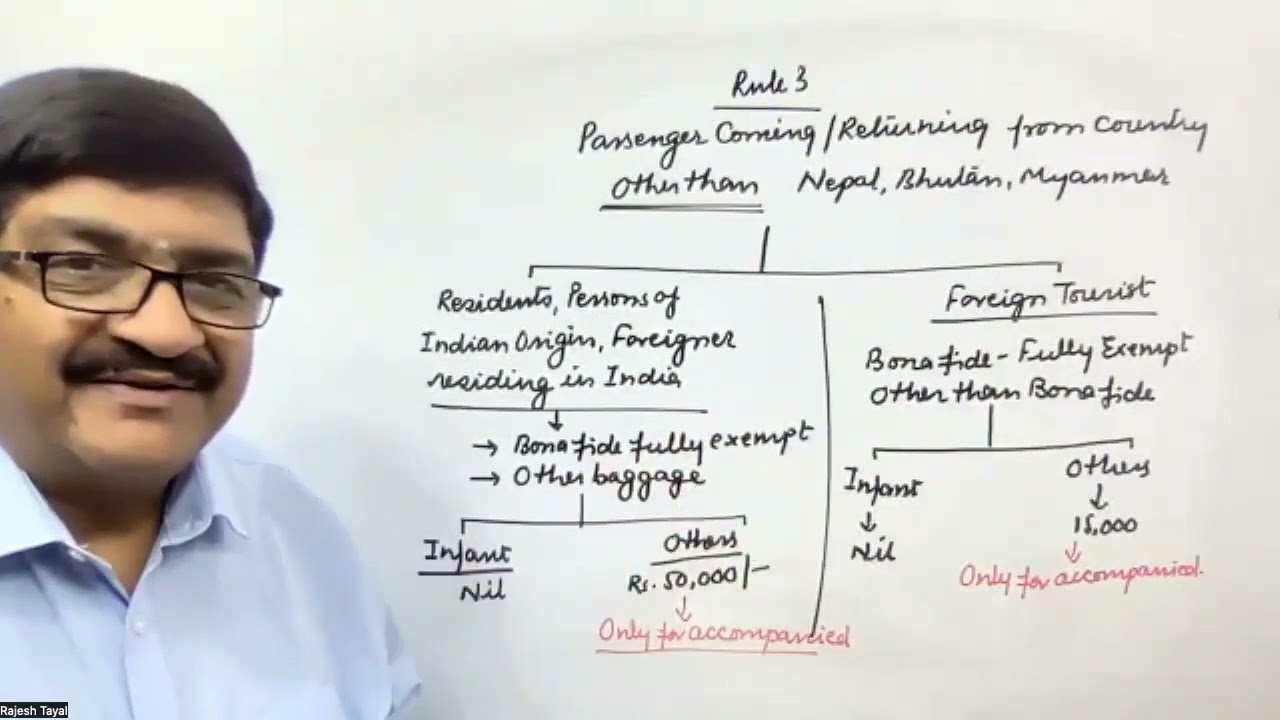 Rule 3
Passenger Coming/Returning from country
Other than Nepal, Bhutan, Myanmar
Residents, Persons of
Indian Origin, Foreigner
residing in India
→ Bonafide fully exempt
→ Other baggage
Infant
Nil
Others
Rs. 50,000/-
Only for accompanied
Foreign Tourist
Bonafide - Fully Exempt
Other than Bonafide
Infant
Nil
Others
15,000
Only for accompanied.
Rajesh Tayal